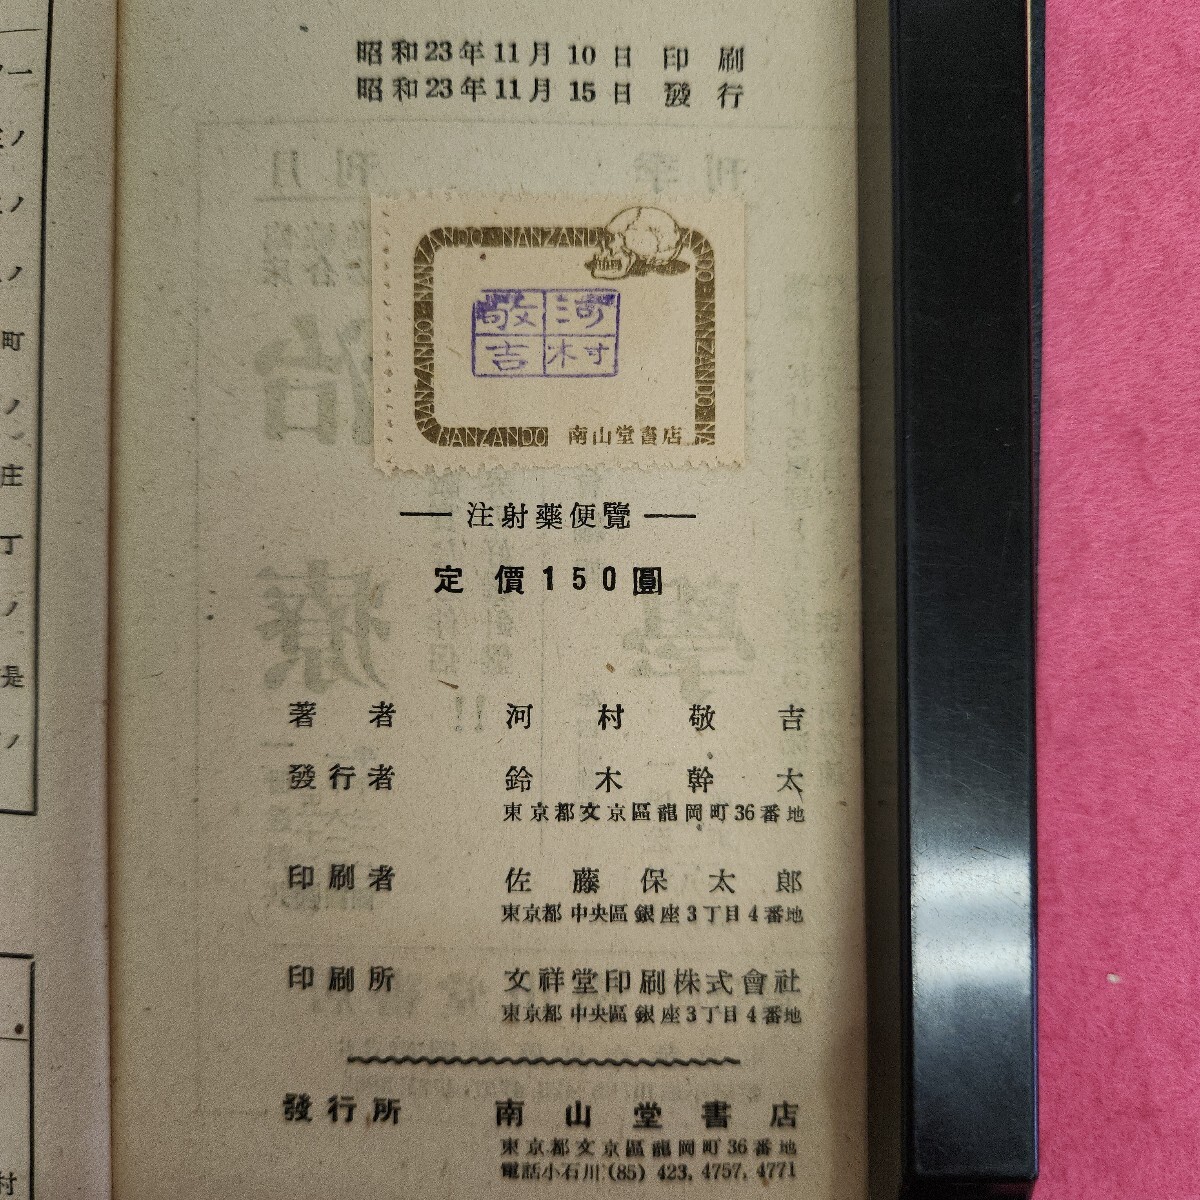 昭和23年11月10日 印刷
昭和23年11月15日 發行
NANZANDO
河村
敬吉
南山堂書店
注射藥便覽
定價150圓
著者 河村敬吉
發行者 鈴木幹太
東京都文京區龍岡町36番地
印刷者 佐藤保太郎
東京都中央區銀座3丁目4番地
印刷所 文祥堂印刷株式會社
東京都中央區銀座3丁目4番地
發行所 南山堂書店
東京都文京區龍岡町36番地
電話小石川(85) 423, 4757, 4771